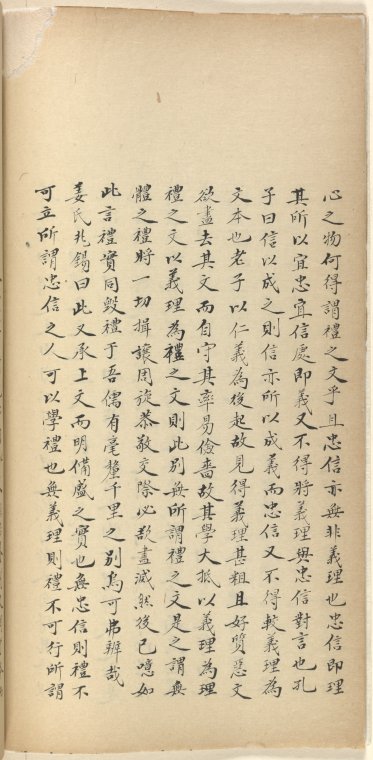 心之物何得謂禮之文乎且忠信亦無非義理也忠信即理
其所以宜忠宜信處即義又不得將義理與忠信對言也孔
子曰信以成之則信亦所以成義而忠信又不得較義理為
文本也老子以仁義為後起故見得義理甚粗且好質惡文
欲盡去其文而自守其率易儉嗇故其學大抵以義理為理
禮之文以義理為禮之文則此别無所謂禮之文是之謂無
體之禮將一切揖讓周旋恭敬交際必欲盡滅然後已噫如
此言禮實同毀禮于吾儒有毫釐千里之别烏可弗辨哉
姜氏兆錫曰此又承上文而明備盛之實也無忠信則禮不
可立所謂忠信之人可以學禮也無義理則禮不可行所謂